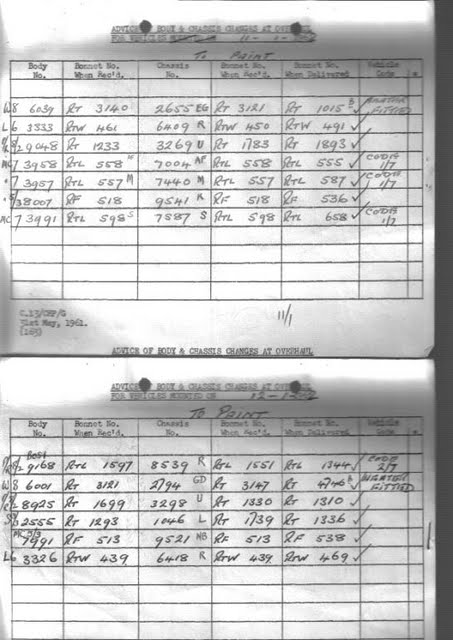 ADVICE OF BODY & CHASSIS CHANGES AT OVERHAUL
FOR VEHICLES MOUNTED ON 11-1-
To PAINT
Body No. Bonnet No. When Rec'd. Chassis No. Bonnet No. When Rec'd. Bonnet No. When Delivered Vehicle Code
W8 6039 RT 3140 2655 EG RT 3121 RT 1015 HEATER FITTED
L6 3333 RTW 461 6409 R RTW 450 RTW 491 ✓
9048 RT 1233 3269 U RT 1783 RT 1893 ✓
MC 7 3958 RTL 558 7004 AF RTL 558 RTL 555 ✓ CODA 1/7
" 7 3957 RTL 557 M 7440 M RTL 557 RTL 587 ✓ CODA 1/7
38007 RF 518 9541 R RF 518 RF 536 ✓
MC 7 3991 RTL 598 S 7587 S RTL 598 RTL 658 ✓ CODA 1/7
C.13/CHP/G
31st May, 1961.
(163)
11/1
ADVICE OF BODY & CHASSIS CHANGES AT OVERHAUL
ADVICE OF BODY & CHASSIS CHANGES AT OVERHAUL
FOR VEHICLES MOUNTED ON 12-1-
To PAINT
Body No. Bonnet No. When Rec'd. Chassis No. Bonnet No. When Rec'd. Bonnet No. When Delivered Vehicle Code
9168 RTL 1597 8539 R RTL 1551 RTL 1344 ✓ CODA 2/7
W8 6001 RT 3121 2794 GD RT 3147 RT 4746 HEATER FITTED
8925 RT 1699 3298 U RT 1330 RT 1310 ✓
2555 RT 1293 1046 L RT 1739 RT 1336 ✓
7991 RF 513 9521 NB RF 513 RF 538 ✓
L6 3326 RTW 439 6418 R RTW 439 RTW 469 ✓